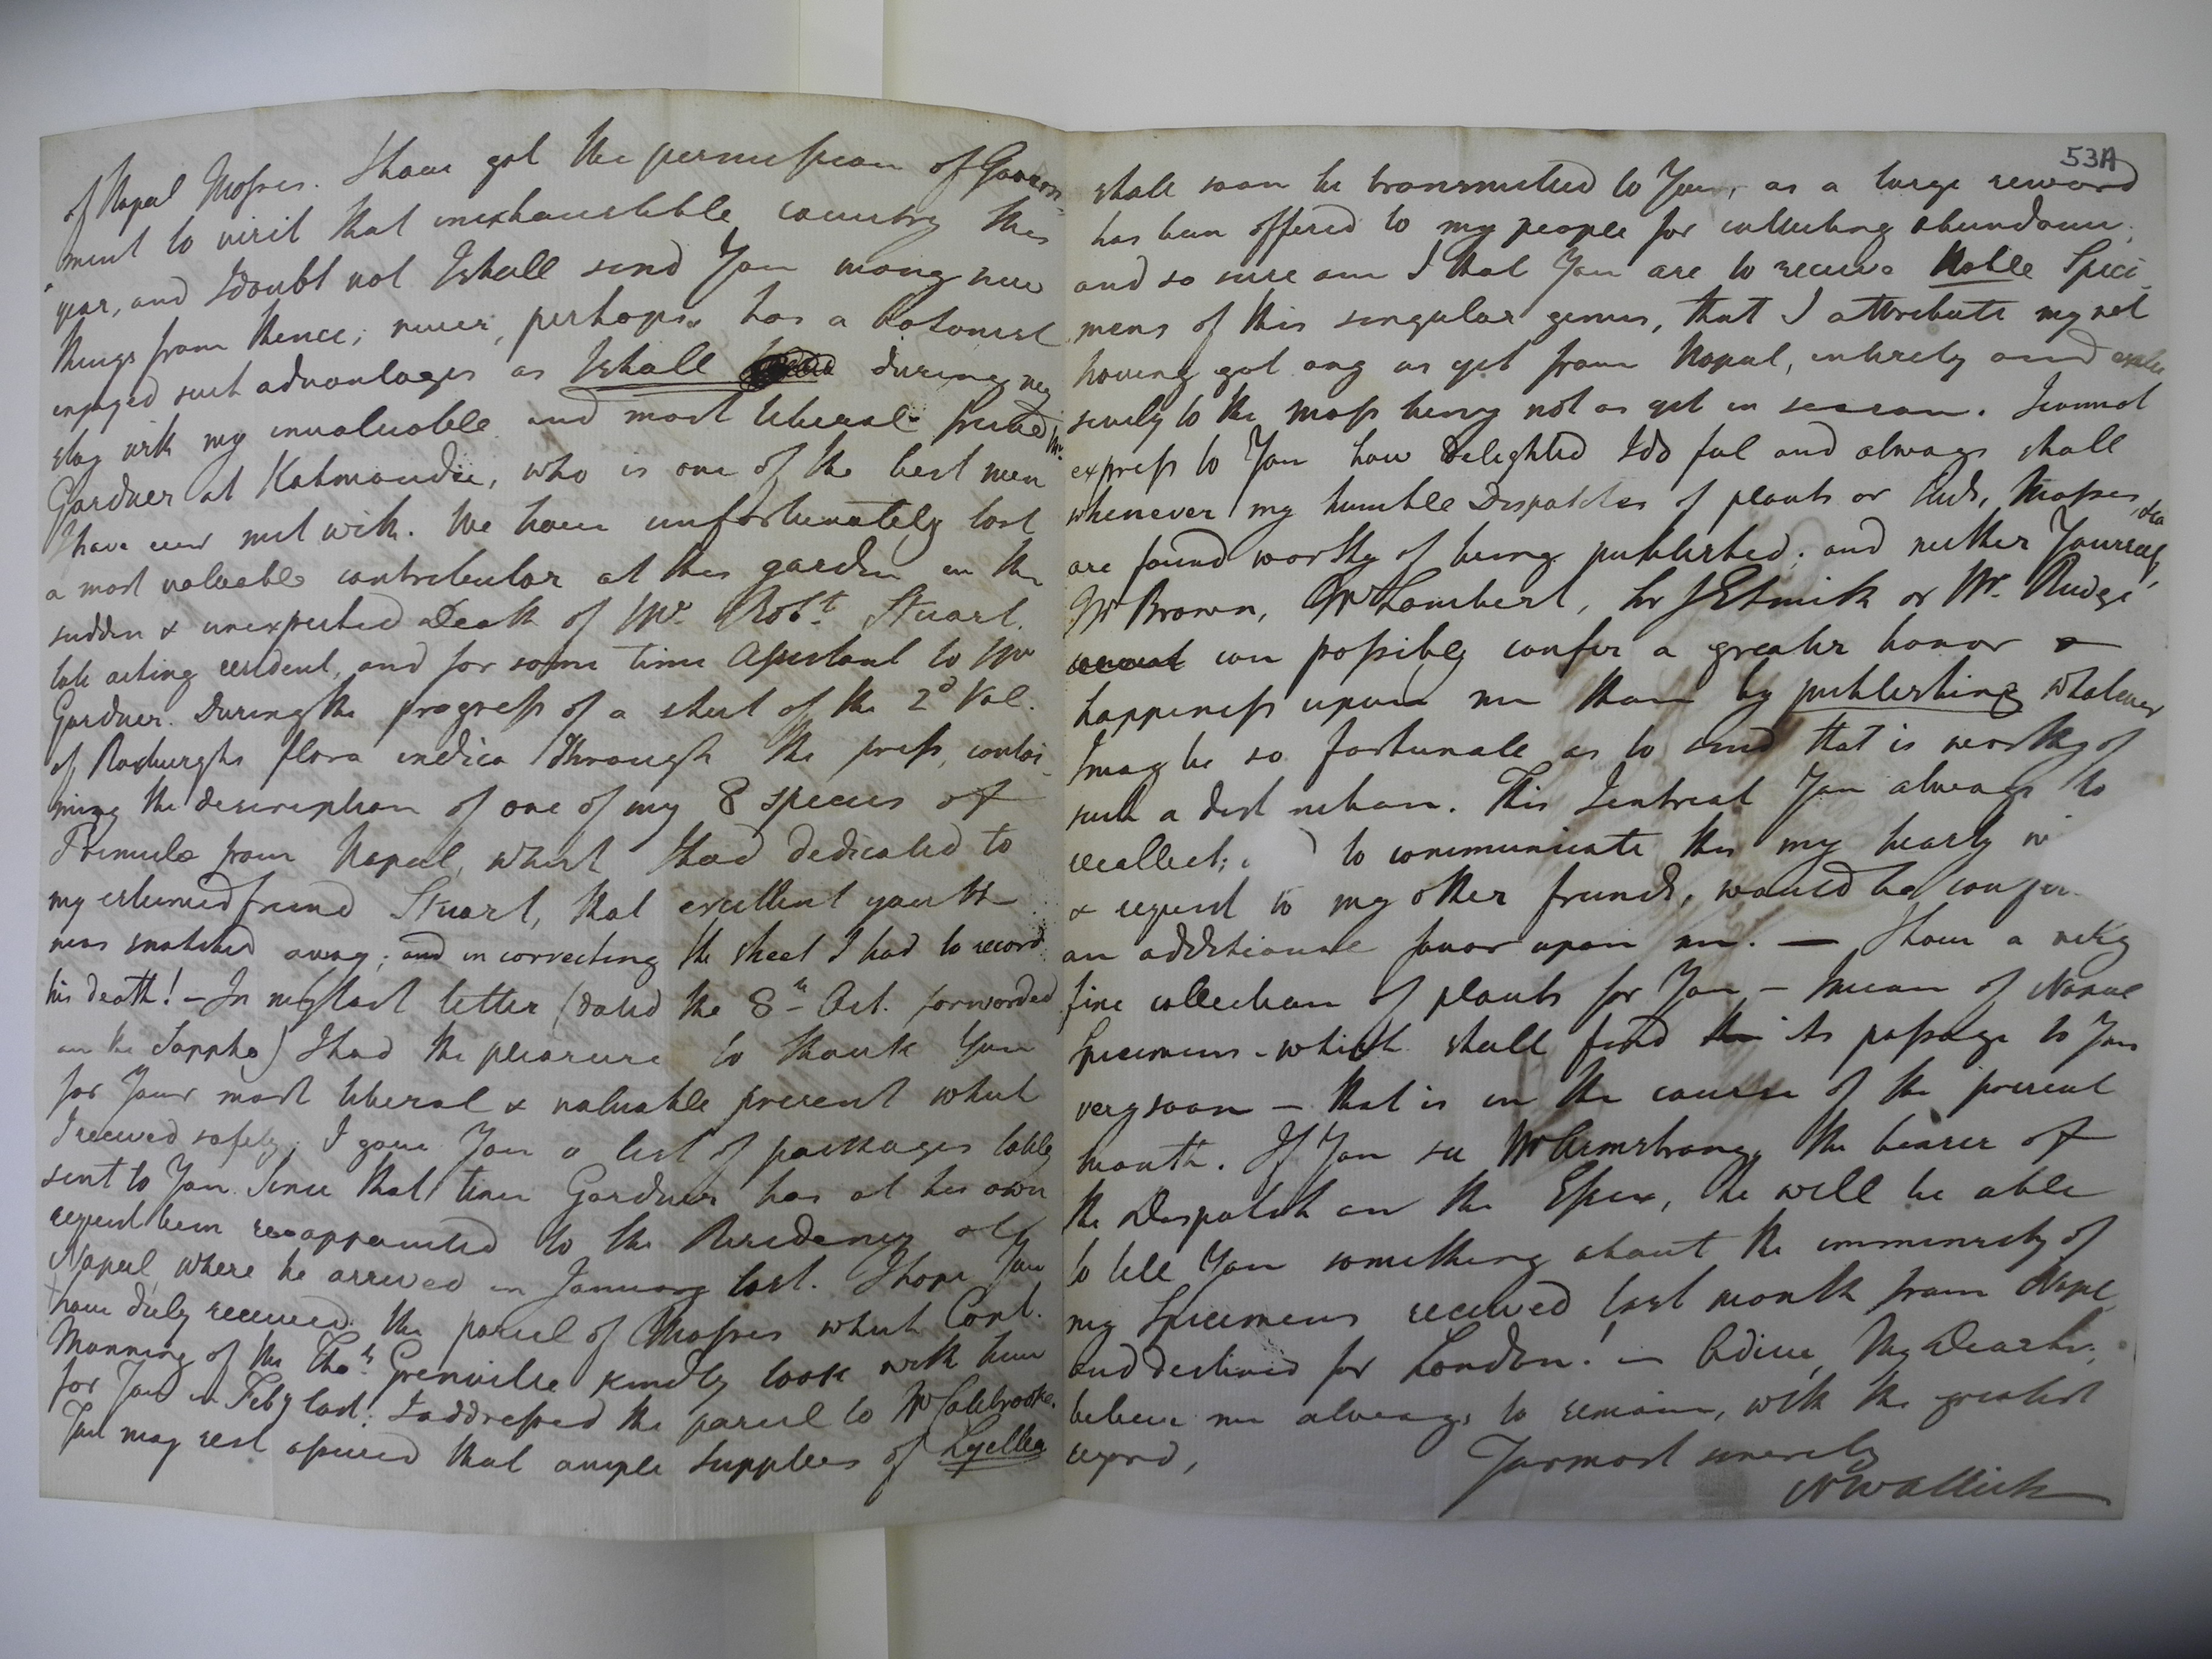 of Napal Mosses. I have got the permission of Govern-
ment to visit that inexhaustible country this
year, and I doubt not I shall send You many new
things from thence; never, perhaps, has a botanist
enjoyed such advantages as I shall during my
stay with my invaluable and most liberal friend Mr.
Gardner at Katmandu, who is one of the best men
I have ever met with. We have unfortunately lost
a most valuable contributor at this garden in the
sudden & unexpected Death of Mr. Robt. Stuart,
late acting resident, and for some time Assistant to Mr
Gardner. During the progress of a sheet of the 2d Vol.
of Roxburghs flora indica through the press, contai-
ning the description of one of my 8 species of
Primula from Napal, which I had dedicated to
my esteemed friend Stuart, that excellent youth
was snatched away; and in correcting the sheet I had to record
his death! – In my last letter (dated the 8th Oct. forwarded
on the Sappho) I had the pleasure to thank You
for Your most liberal & valuable present which
I received safely; I gave You a list of packages lately
sent to You. Since that time Gardner has at his own
request been reappointed to the Residency of
Napal, where he arrived in January last. I hope You
have duly received the parcel of Mosses which Capt.
Manning of the Thos. Grenville kindly took with him
for You in Feby last; I addressed the parcel to Mr Colebrooke.
You may rest assured that ample supplies of Lyellia
53A
shall soon be transmitted to You, as a large reward
has been offered to my people for collecting abundance;
and so sure am I that You are to receive Noble Speci-
mens of this singular genus, that I attribute my not
having got any as yet from Napal, entirely and exclu
sively to the moss being not as yet in season. I cannot
express to You how Delighted I do feel and always shall
whenever my humble Dispatches of plants or Mosses, &ca
are found worthy of being published; and neither Yourself,
Mr Brown, Mr Lambert, Sir J E Smith or Mr. Rudge
can possibly confer a greater honor &
happiness upon me than by publishing whatever
I may be so fortunate as to send that is worthy of
such a dist nction. This I entreat You always to
recollect; to communicate this my hearty
& request to my other friends, would be
an additional favor upon me. — I have a very
fine collection of plants for You – I mean of Napal
Specimens – which shall find its passage to You
very soon – that is in the course of the present
month. If You see Mr Armstrong, the bearer of
the Dispatch on the Essex, he will be able
to tell You something about the immensity of
my Specimens received last month from Napl
and destined for London! – Adieu, My Dear Sir;
believe me always to remain, with the greatest
regard,
Your most sincerely
N Wallich